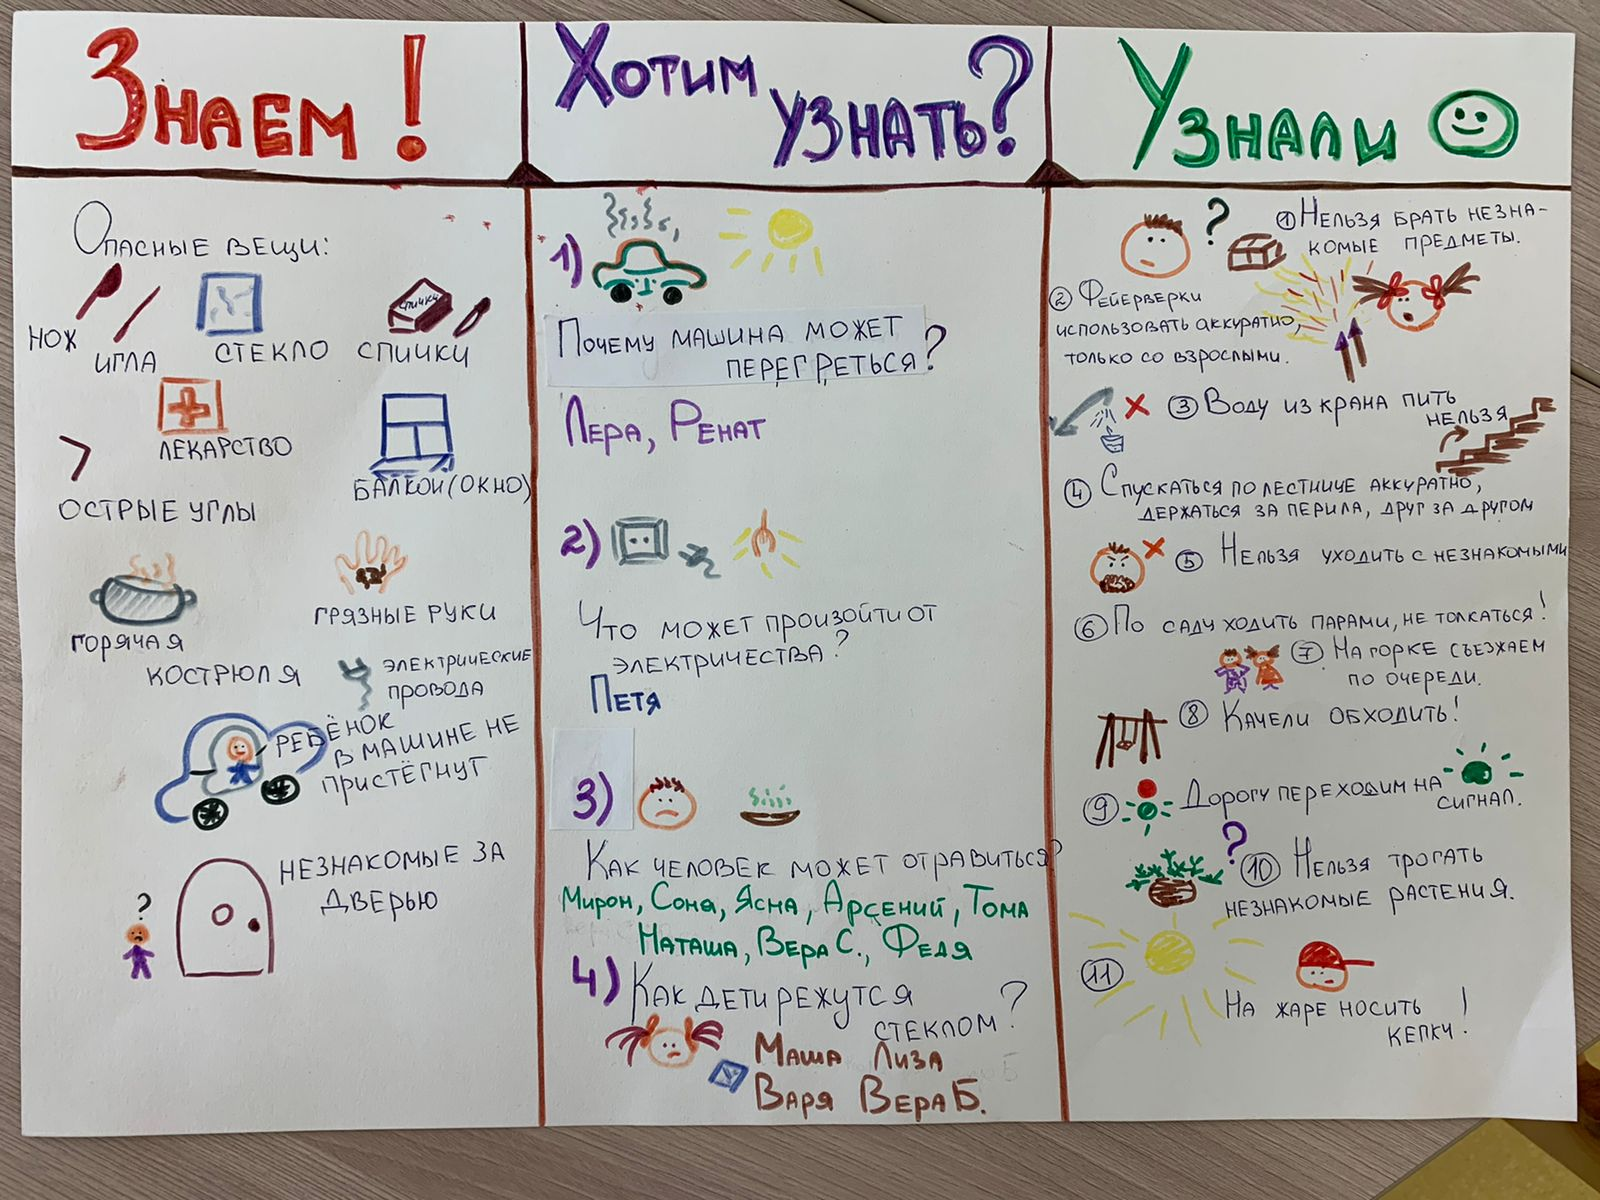 Знаем!
Опасные вещи:
нож
игла
стекло
спички
спички
лекарство
острые углы
балкон(окно)
горячая
кострюля
грязные руки
электрические
провода
ребёнок
в машине не
пристёгнут
?
незнакомые за
дверью
Хотим
узнать?
1)
Почему машина может
перегреться?
Лера, Ренат
2)
Что может произойти от
электричества?
Петя
3)
Как человек может отравиться?
Мирон, Соня, Ясна, Арсений, Тома
Наташа, Вера С., Федя
4) Как дети режутся
стеклом?
Маша Лиза
Варя Вера Б.
Узнали
?
1 Нельзя брать незна-
комые предметы.
2 Фейерверки
использовать аккуратно,
только со взрослыми.
3 Воду из крана пить
нельзя
4 Спускаться по лестнице аккуратно,
держаться за перила, друг за другом
5 Нельзя уходить с незнакомыми
6 По саду ходить парами, не толкаться!
7 На горке съезжаем
по очереди.
8 Качели обходить!
9 Дорогу переходим на
сигнал.
?
10 Нельзя трогать
незнакомые растения.
11
На жаре носить
кепку!